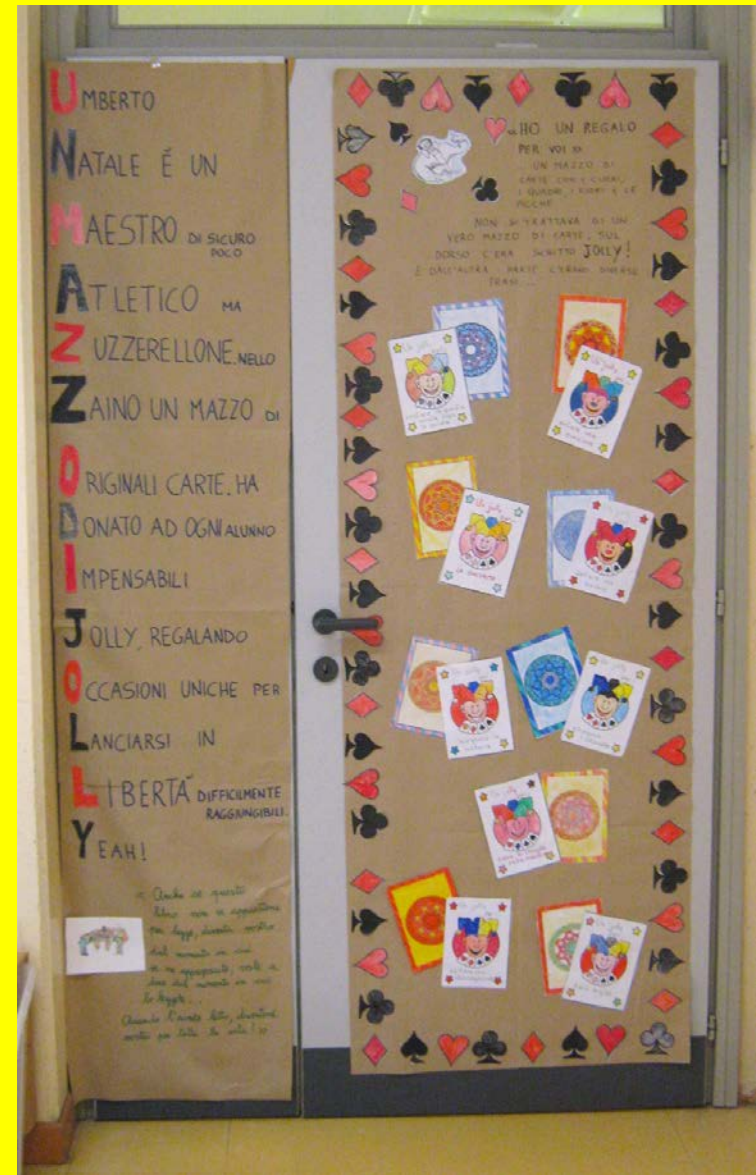 UMBERTO
NATALE É UN
MAESTRO DI SICURO
POCO
ATLETICO MA
ZUZZERELLONE. NELLO
ZAINO UN MAZZO DI
ORIGINALI CARTE. HA
DONATO AD OGNI ALUNNO
IMPENSABILI
JOLLY, REGALANDO
OCCASIONI UNICHE PER
LANCIARSI IN
LIBERTÀ DIFFICILMENTE
RAGGIUNGIBILI.
YEAH!
« Anche se questo
libro non vi appartiene
per legge, diventa vostro
dal momento in cui
ve ne appropriate, vale a
dire dal momento in cui
lo leggete...
Quando l'avrete letto, diventerà
vostro per tutta la vita! »
«HO UN REGALO
PER VOI »
UN MAZZO DI
CARTE CON I CUORI,
I QUADRI, I FIORI E LE
PICCHE
NON SI TRATTAVA DI UN
VERO MAZZO DI CARTE, SUL
DORSO C'ERA SCRITTO JOLLY!
E DALL'ALTRA PARTE C'ERANO DIVERSE
FRASI...
Un jolly
Un jolly
Un jolly
Un jolly
Un jolly
Un jolly
Un jolly
Un jolly
Un jolly